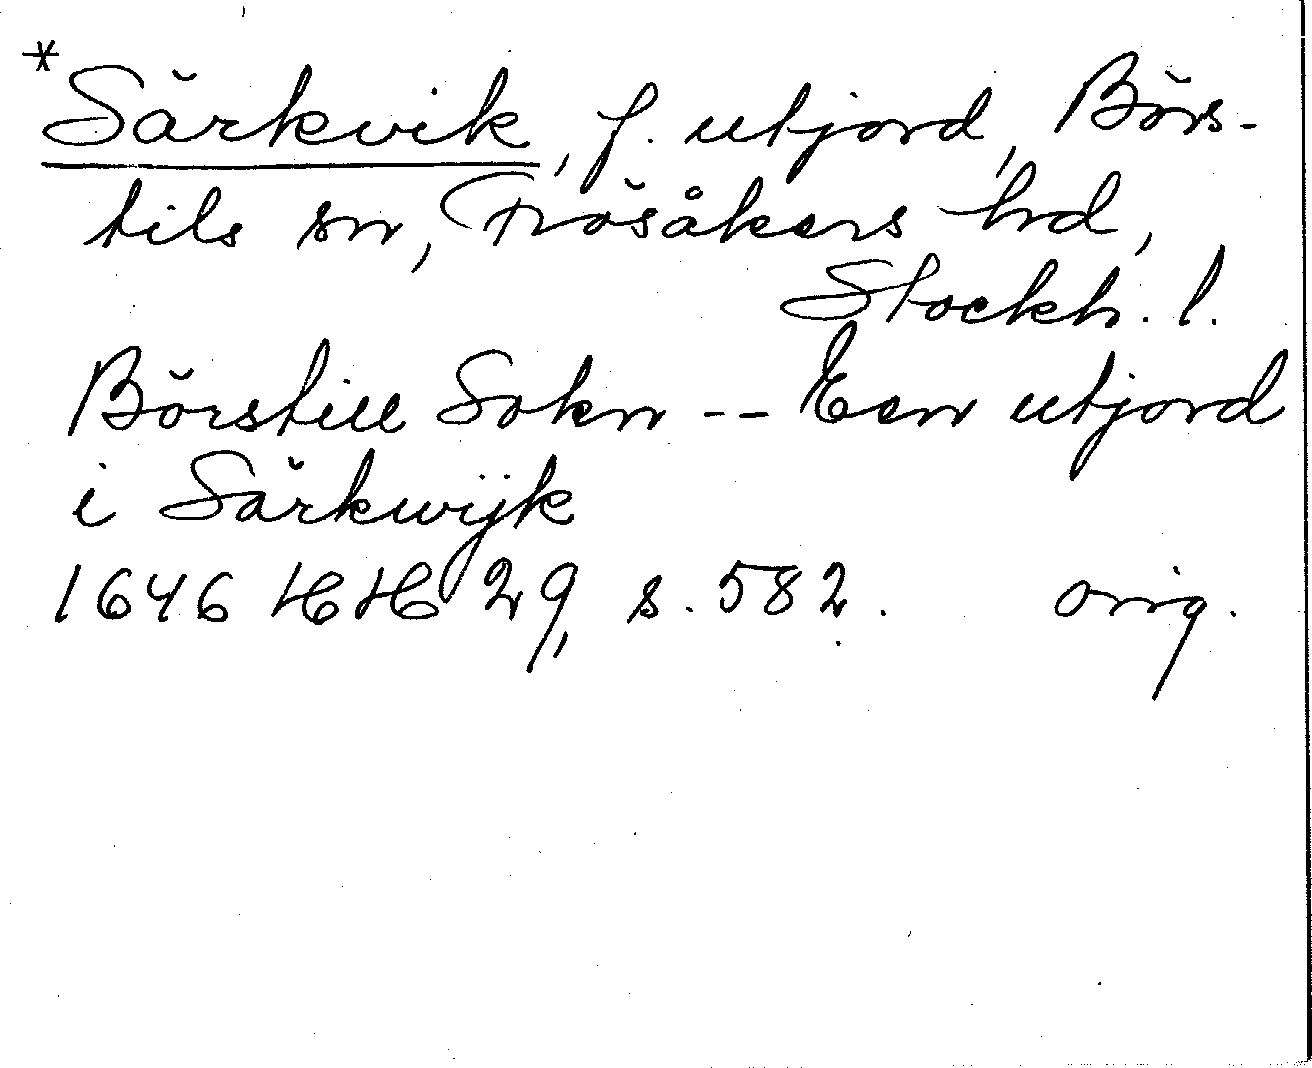 *Särkvik, f. utjord, Börs-
tils sn, Frösåkers hd,
Stockh. l.
Börstill Sokn -- Een utjord
i Särkwijk
1646 HH 29, s. 582. orig.